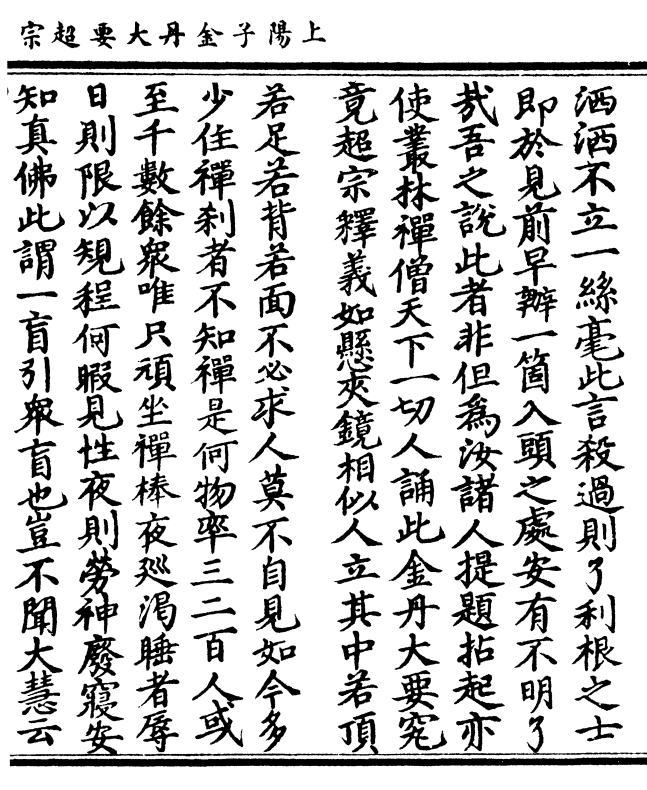 上陽子金丹大要超宗
洒洒不立一絲毫此言殺過則了利根之士
即於見前早辦一箇入頭之處安有不明了
哉吾之說此者非但為汝諸人提題拈起亦
使叢林禪僧天下一切人誦此金丹大要究
竟超宗釋義如懸夾鏡相似人立其中若頂
若足若背若面不必求人莫不自見如今多
少住禪剎者不知禪是何物率三二百人或
至千數餘衆唯只頑坐禪棒夜廵渴睡者辱
日則限以規程何暇見性夜則勞神廢寢安
知真佛此謂一盲引衆盲也豈不聞大慧云